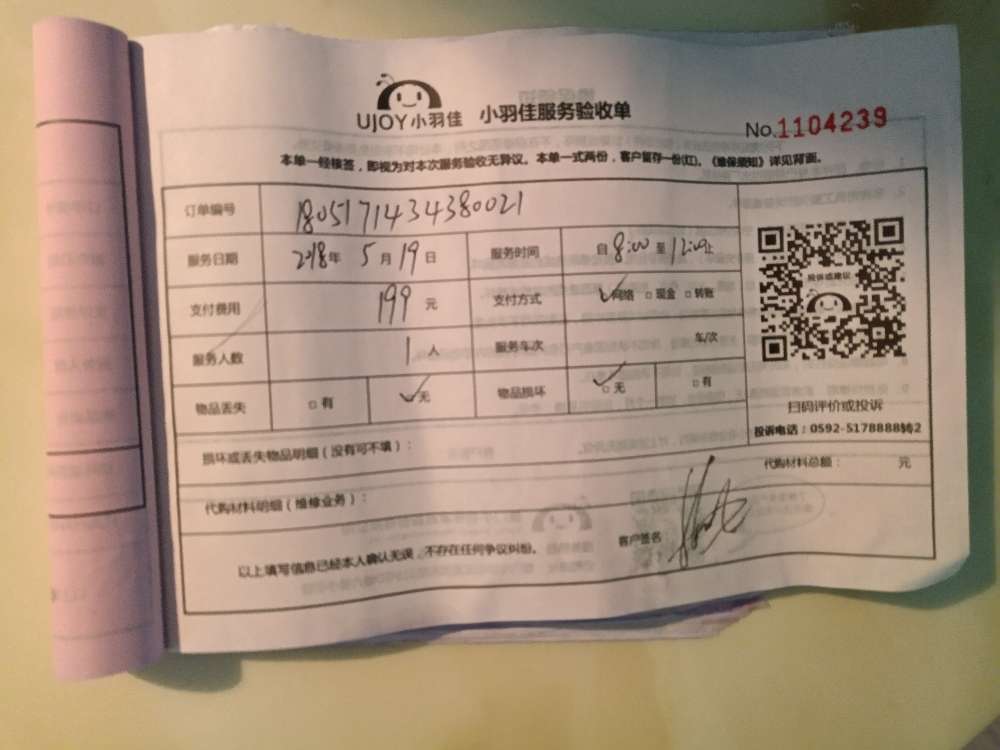 UJOY小羽佳 小羽佳服务验收单
No.1104239
本单一经核签，即视为对本次服务验收无异议。本单一式两份，客户留存一份(红)。《维保须知》详见背面。
订单编号 1805171434380021
服务日期 2018年 5月19日 服务时间 自8:00至12:00止
支付费用 199元 支付方式 ✓网络 □现金 □转账
服务人数 1人 服务车次 车/次
物品丢失 □有 ✓无 物品损坏 ✓□无 □有
投诉或建议
扫码评价或投诉
投诉电话：0592-5178888转2
损坏或丢失物品明细（没有可不填）：
代购材料明细（维修业务）： 代购材料总额： 元
以上填写信息已经本人确认无误，不存在任何争议纠纷。 客户签名